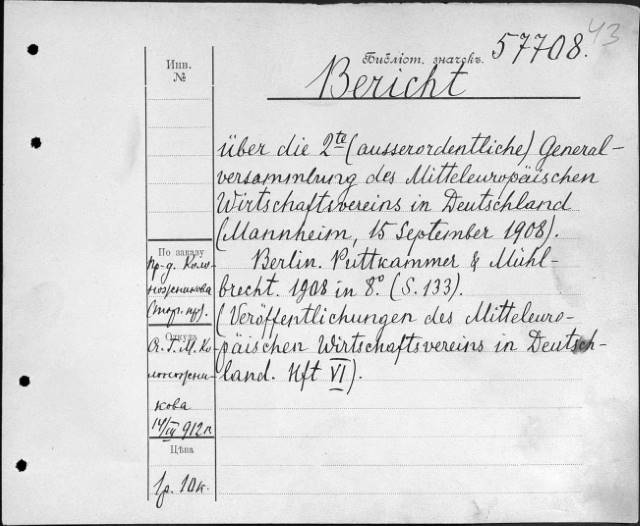 43
Библіот. значекъ. 57708.
Bericht
über die 2te (ausserordentliche) General-
versammlung des Mitteleuropäischen
Wirtschaftsvereins in Deutschland
(Mannheim, 15 September 1908).
Berlin. Puttkammer & Mühl-
brecht. 1908 in 8.° (S. 133).
(Veröffentlichungen des Mitteleuro-
päischen Wirtschaftsvereins in Deutsch-
land. Hft VI).
Инв.
№
По заказу
пр-д. Коло-
ножникова
Откуда
кова
14/III 912 г.
Цѣна
1р. 10к.